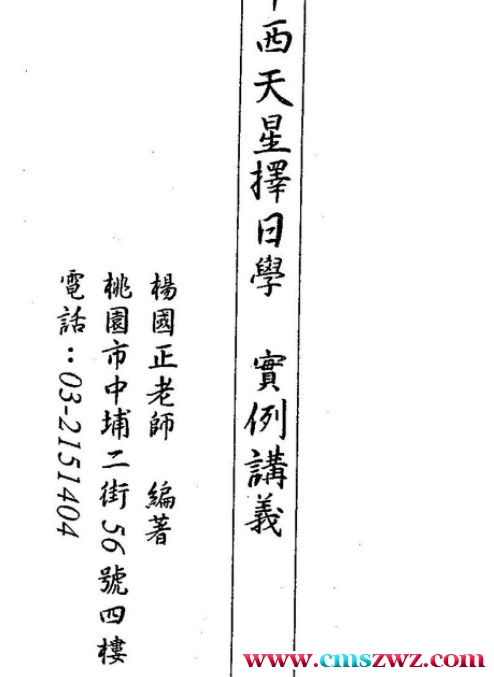 西天星擇日學 實例講義
楊國正老師 編著
桃園市中埔二街56號四樓
電話：03-2151404
www.cmszwz.com